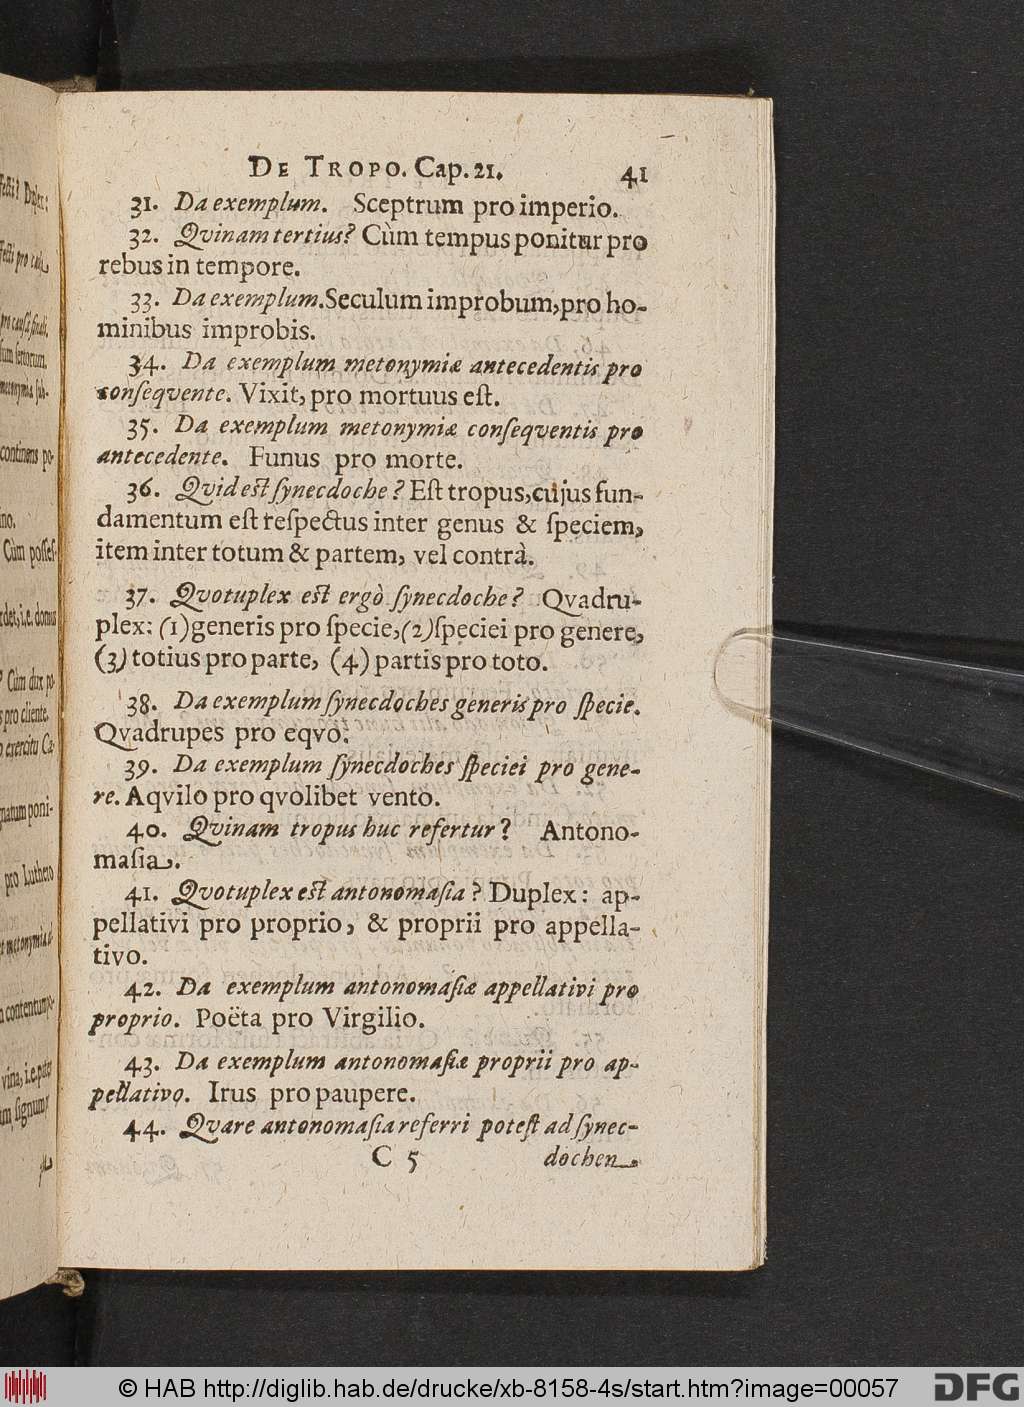 DE TROPO. Cap. 21. 41
31. Da exemplum. Sceptrum pro imperio.
32. Qvinam tertius? Cùm tempus ponitur pro
rebus in tempore.
33. Da exemplum. Seculum improbum, pro ho-
minibus improbis.
34. Da exemplum metonymiæ antecedentis pro
conſeqvente. Vixit, pro mortuus eſt.
35. Da exemplum metonymiæ conſeqventis pro
antecedente. Funus pro morte.
36. Qvid eſt ſynecdoche? Eſt tropus, cujus fun-
damentum eſt reſpectus inter genus & ſpeciem,
item inter totum & partem, vel contrà.
37. Qvotuplex eſt ergò ſynecdoche? Qvadru-
plex: (1) generis pro ſpecie, (2) ſpeciei pro genere,
(3) totius pro parte, (4) partis pro toto.
38. Da exemplum ſynecdoches generis pro ſpecie.
Qvadrupes pro eqvo.
39. Da exemplum ſynecdoches ſpeciei pro gene-
re. Aqvilo pro qvolibet vento.
40. Qvinam tropus huc refertur? Antono-
maſia.
41. Qvotuplex eſt antonomaſia? Duplex: ap-
pellativi pro proprio, & proprii pro appella-
tivo.
42. Da exemplum antonomaſiæ appellativi pro
proprio. Poëta pro Virgilio.
43. Da exemplum antonomaſiæ proprii pro ap-
pellativo. Irus pro paupere.
44. Qvare antonomaſia referri poteſt ad ſynec-
C 5 dochen.
pro cauſâ finali.
continens po-
Cùm poſſeſ-
i.e. domus
Cùm dux po-
pro cliente.
exercitu Cæ-
pro Luthero
vina, i.e. pater
© HAB http://diglib.hab.de/drucke/xb-8158-4s/start.htm?image=00057
DFG